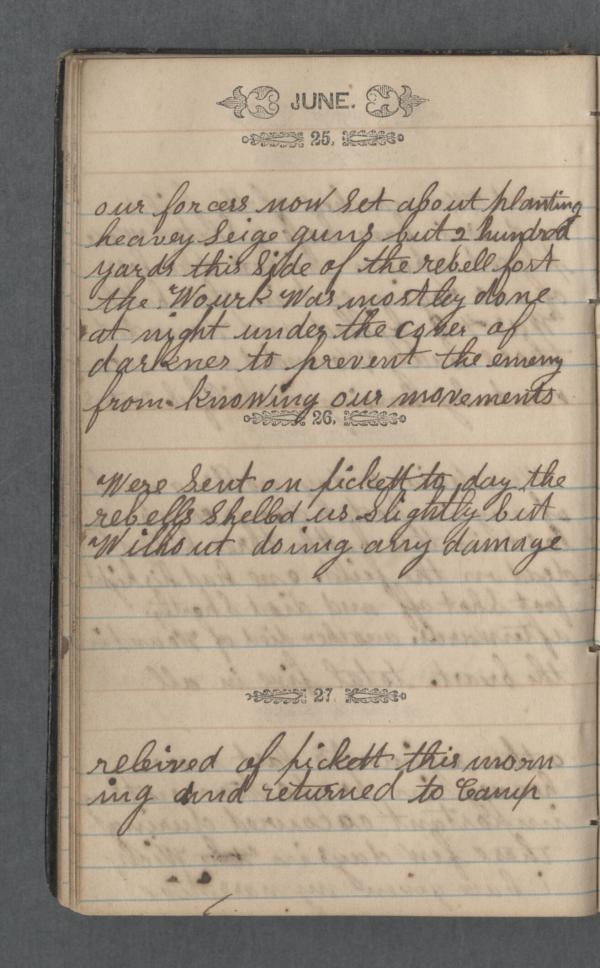 JUNE.
25.
our forcess now Set about planting
heavey Seige guns but 2 hundred
yards this Side of the rebell fort
the Wourk Was mostley done
at night under the cover of
darknes to prevent the emeny
from knowing our movements
26.
Were Sent on pickett to day the
rebells Shelled us Slightly but
Without doing any damage
27.
releived of pickett this morn
ing and returned to Camp